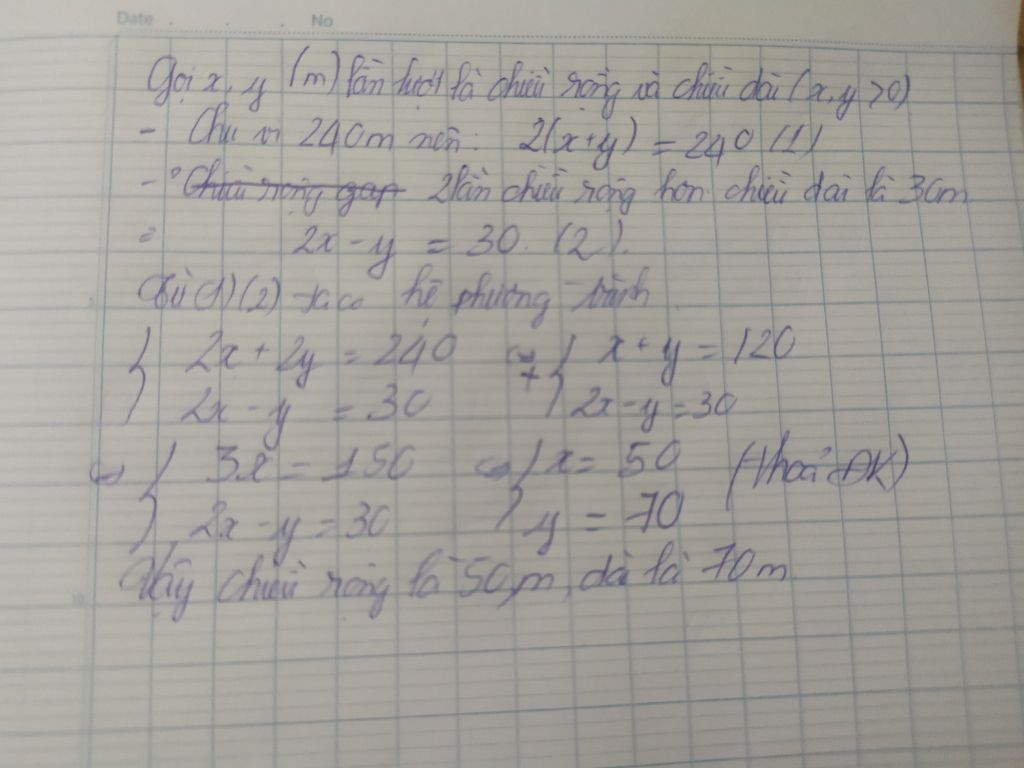 Date No
Gọi x, y (m) lần lượt là chiều rộng và chiều dài (x, y > 0)
- Chu vi 240m nên: 2(x+y) = 240 (1)
- Chiều rộng gấp 2 lần chiều rộng hơn chiều dài là 30m
2x - y = 30. (2).
Từ (1) (2) ta có hệ phương trình
{ 2x + 2y = 240 <=> { x + y = 120
{ 2x - y = 30 { 2x - y = 30
<=> { 3x = 150 <=> { x = 50 (thoả ĐK)
{ 2x - y = 30 { y = 70
Vậy chiều rộng là 50m, dài là 70m